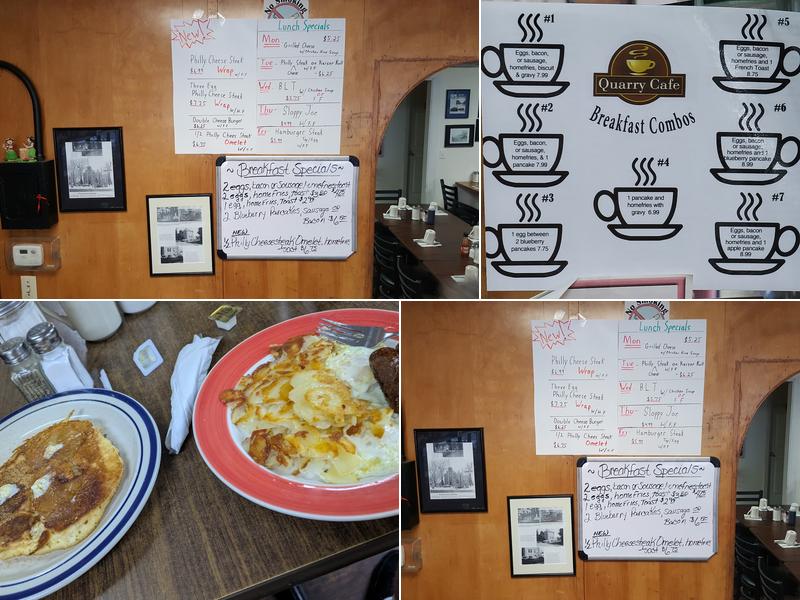 No Smoking
New!
Philly Cheese Steak
$6.99 Wrap w/FF
Three Egg
Philly Cheese Steak
$7.25 Wrap w/H.F
Double Cheese Burger
$6.25 w/FF
1/2 Philly Chees Steak
$6.75 Omelet
Lunch Specials
Mon $5.25
Grilled Cheese
Tue - Philly Steak on Kaiser Roll
Cheese w/FF $6.25
Wed BLT w/Chicken Soup
$5.75 or FF
Thu- Sloppy Joe
$4.99 w/FF
Fri Hamburger Steak
$4.99
~ Breakfast Specials ~
2 eggs, Bacon or Sausage, homefries, toast
2 eggs, homefries, toast
1 egg, homefries, toast $2.99
2 Blueberry Pancakes, Sausage or
Bacon
NEW
1/2 Philly Cheesesteak Omelet, homefries,
toast $6.75
#1
Eggs, bacon
or sausage,
homefries, biscuit
& gravy 7.99
#2
Eggs, bacon,
or sausage,
homefries, & 1
pancake 7.99
#3
1 egg between
2 blueberry
pancakes 7.75
Quarry Cafe
Breakfast Combos
#4
1 pancake and
homefries with
gravy 6.99
#5
Eggs, bacon
or sausage,
homefries and 1
French Toast
8.75
#6
Eggs, bacon
or sausage,
homefries and 1
blueberry pancake
8.99
#7
Eggs, bacon
or sausage,
homefries and 1
apple pancake
8.99
No Smoking
New!
Philly Cheese Steak
$6.99 Wrap w/FF
Three Egg
Philly Cheese Steak
$7.25 Wrap w/H.F
Double Cheese Burger
$6.25 w/FF
1/2 Philly Chees Steak
$6.75 Omelet
Lunch Specials
Mon $5.25
Grilled Cheese
Tue - Philly Steak on Kaiser Roll
Cheese w/FF $6.25
Wed BLT w/Chicken Soup
$5.75 or FF
Thu- Sloppy Joe
$4.99 w/FF
Fri Hamburger Steak
$4.99
~ Breakfast Specials ~
2 eggs, Bacon or Sausage, homefries, toast
2 eggs, homefries, toast
1 egg, homefries, toast $2.99
2 Blueberry Pancakes, Sausage or
Bacon
NEW
1/2 Philly Cheesesteak Omelet, homefries,
toast $6.75